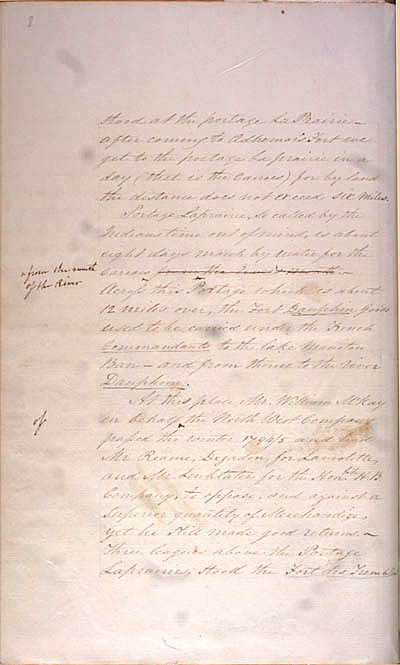 8
stood at the portage La Prairie –
after coming to Adhemar's Fort we
get to the portage La prairie in a
day (that is the Canoes) for by land
the distance does not exceed six miles.
Portage Laprairie, so called by the
Indians time out of mind, is about
eight days march by water for the
Canoes from the
a from the mouth
of the River
Across this Portage which is about
12 miles over, the Fort Dauphin Goods
used to be carried under the French
Commandants to the lake Manitou
Ban – and from thence to the River
Dauphine.
At this place Mr. William McKay
of
in behalf the North West Company
passed the winter 1794/5 and had
Mr Reaume, for
and Mr. Linklater for the Honble H.B
Company, to oppose, and against a
Superior quantity of Merchandize,
yet he still made good returns. –
Three leagues above the Portage
Laprairie, stood the Fort des Trembles